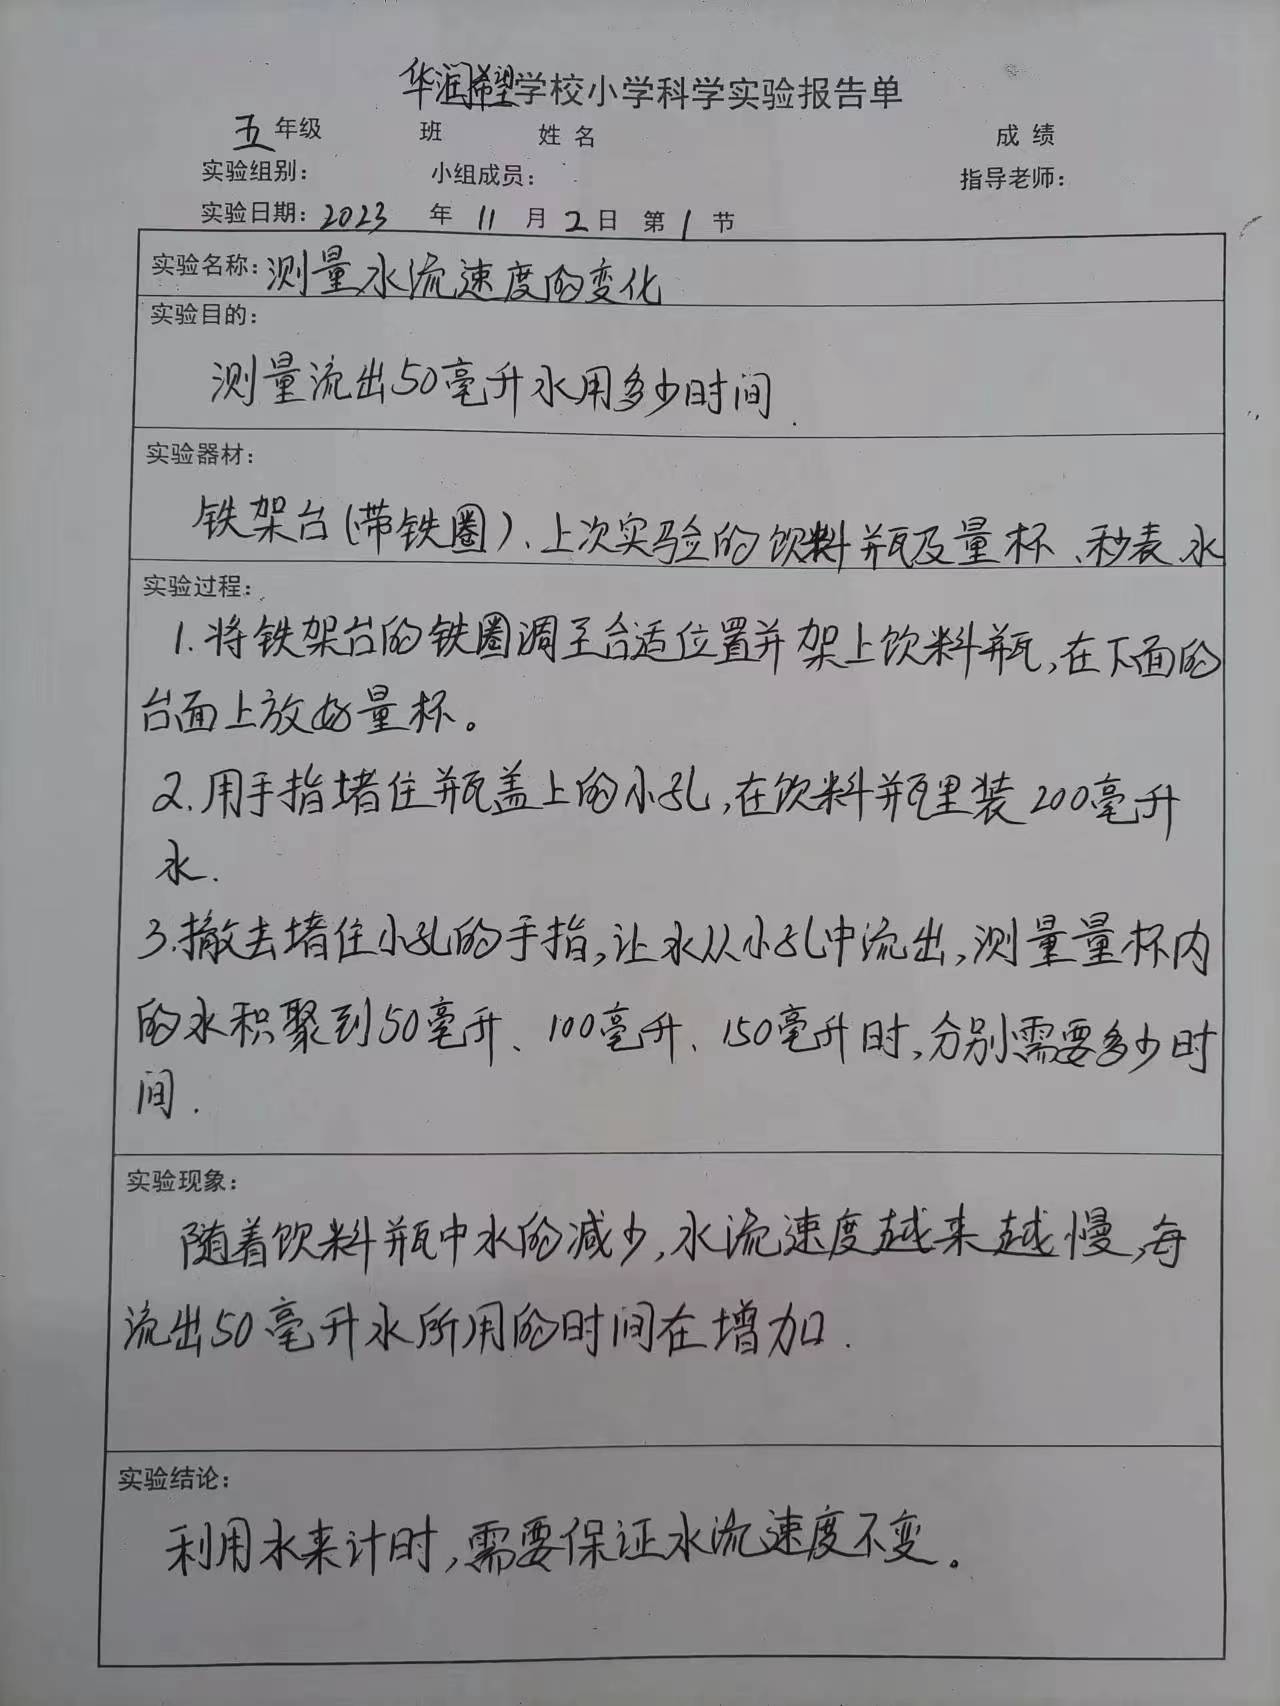 华润希望学校小学科学实验报告单
五年级 班 姓名 成绩
实验组别: 小组成员: 指导老师:
实验日期: 2023 年 11 月 2 日 第 1 节
实验名称: 测量水流速度的变化
实验目的:
测量流出50毫升水用多少时间.
实验器材:
铁架台(带铁圈)、上次实验的饮料瓶及量杯、秒表 水
实验过程:
1.将铁架台的铁圈调至合适位置并架上饮料瓶,在下面的
台面上放好量杯。
2.用手指堵住瓶盖上的小孔,在饮料瓶里装200毫升
水.
3.撤去堵住小孔的手指,让水从小孔中流出,测量量杯内
的水积聚到50毫升、100毫升、150毫升时,分别需要多少时
间.
实验现象:
随着饮料瓶中水的减少,水流速度越来越慢,每
流出50毫升水所用的时间在增加.
实验结论:
利用水来计时,需要保证水流速度不变。